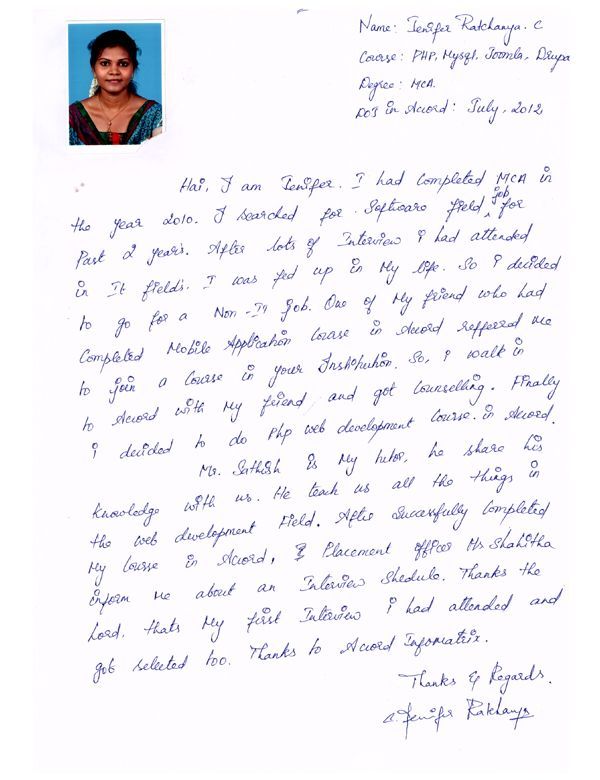 Name: Jenifer Ratchanya. C
Course: PHP, Mysql, Joomla, Drupa
Degree: MCA.
DOJ in Acord: July, 2012
Hai, I am Jenifer. I had completed MCA in
the year 2010. I searched for Software field job for
Past 2 years. After lots of Interview i had attended
in It fields. I was fed up in My life. So i decided
to go for a Non-IT job. One of My friend who had
Completed Mobile Application Course in Acord refferred me
to join a Course in your Institution. So, i walk in
to Acord with My friend and got Counselling. Finally
i decided to do Php web development Course in Acord.
Mr. Sathish is My tutor, he share his
knowledge with us. He teach us all the things in
the web development Field. After Successfully Completed
My Course in Acord, Placement officer Ms. Shahitha
inform me about an Interview Shedule. Thanks the
Lord, thats My first Interview i had attended and
got selected too. Thanks to Acord Infomatrix.
Thanks & Regards.
C. Jenifer Ratchanya